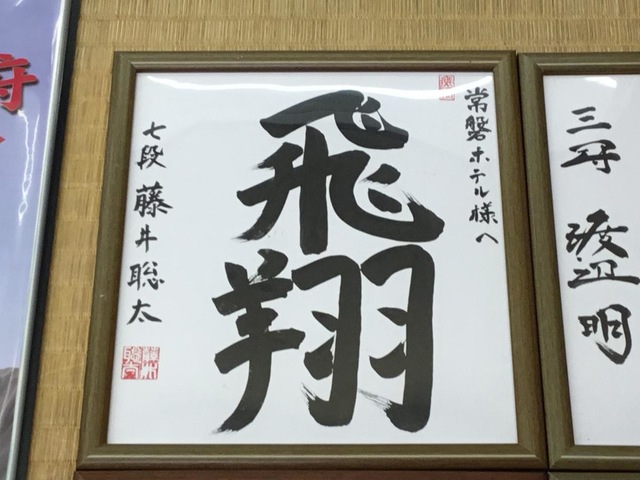 常磐ホテル様へ
飛翔
七段 藤井聡太
三冠 渡辺明